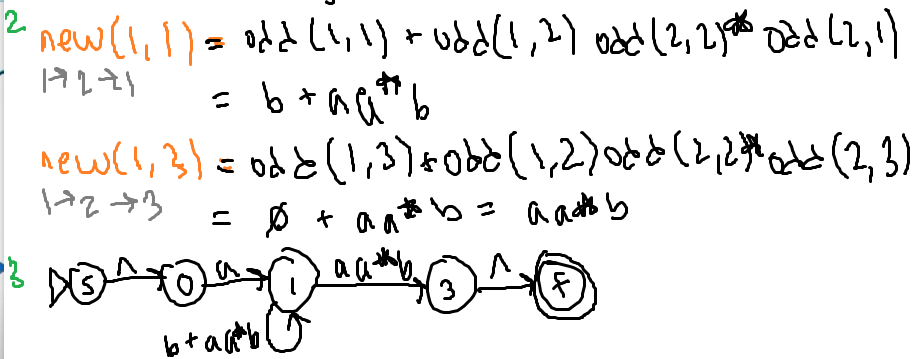 2 new(1,1) = odd(1,1) + odd(1,2) odd(2,2)* odd(2,1)
1→2→1 = b + aa*b
new(1,3) = odd(1,3) + odd(1,2) odd(2,2)* odd(2,3)
1→2→3 = ∅ + aa*b = aa*b
3 S Λ 0 a 1 aa*b 3 Λ F
b+aa*b